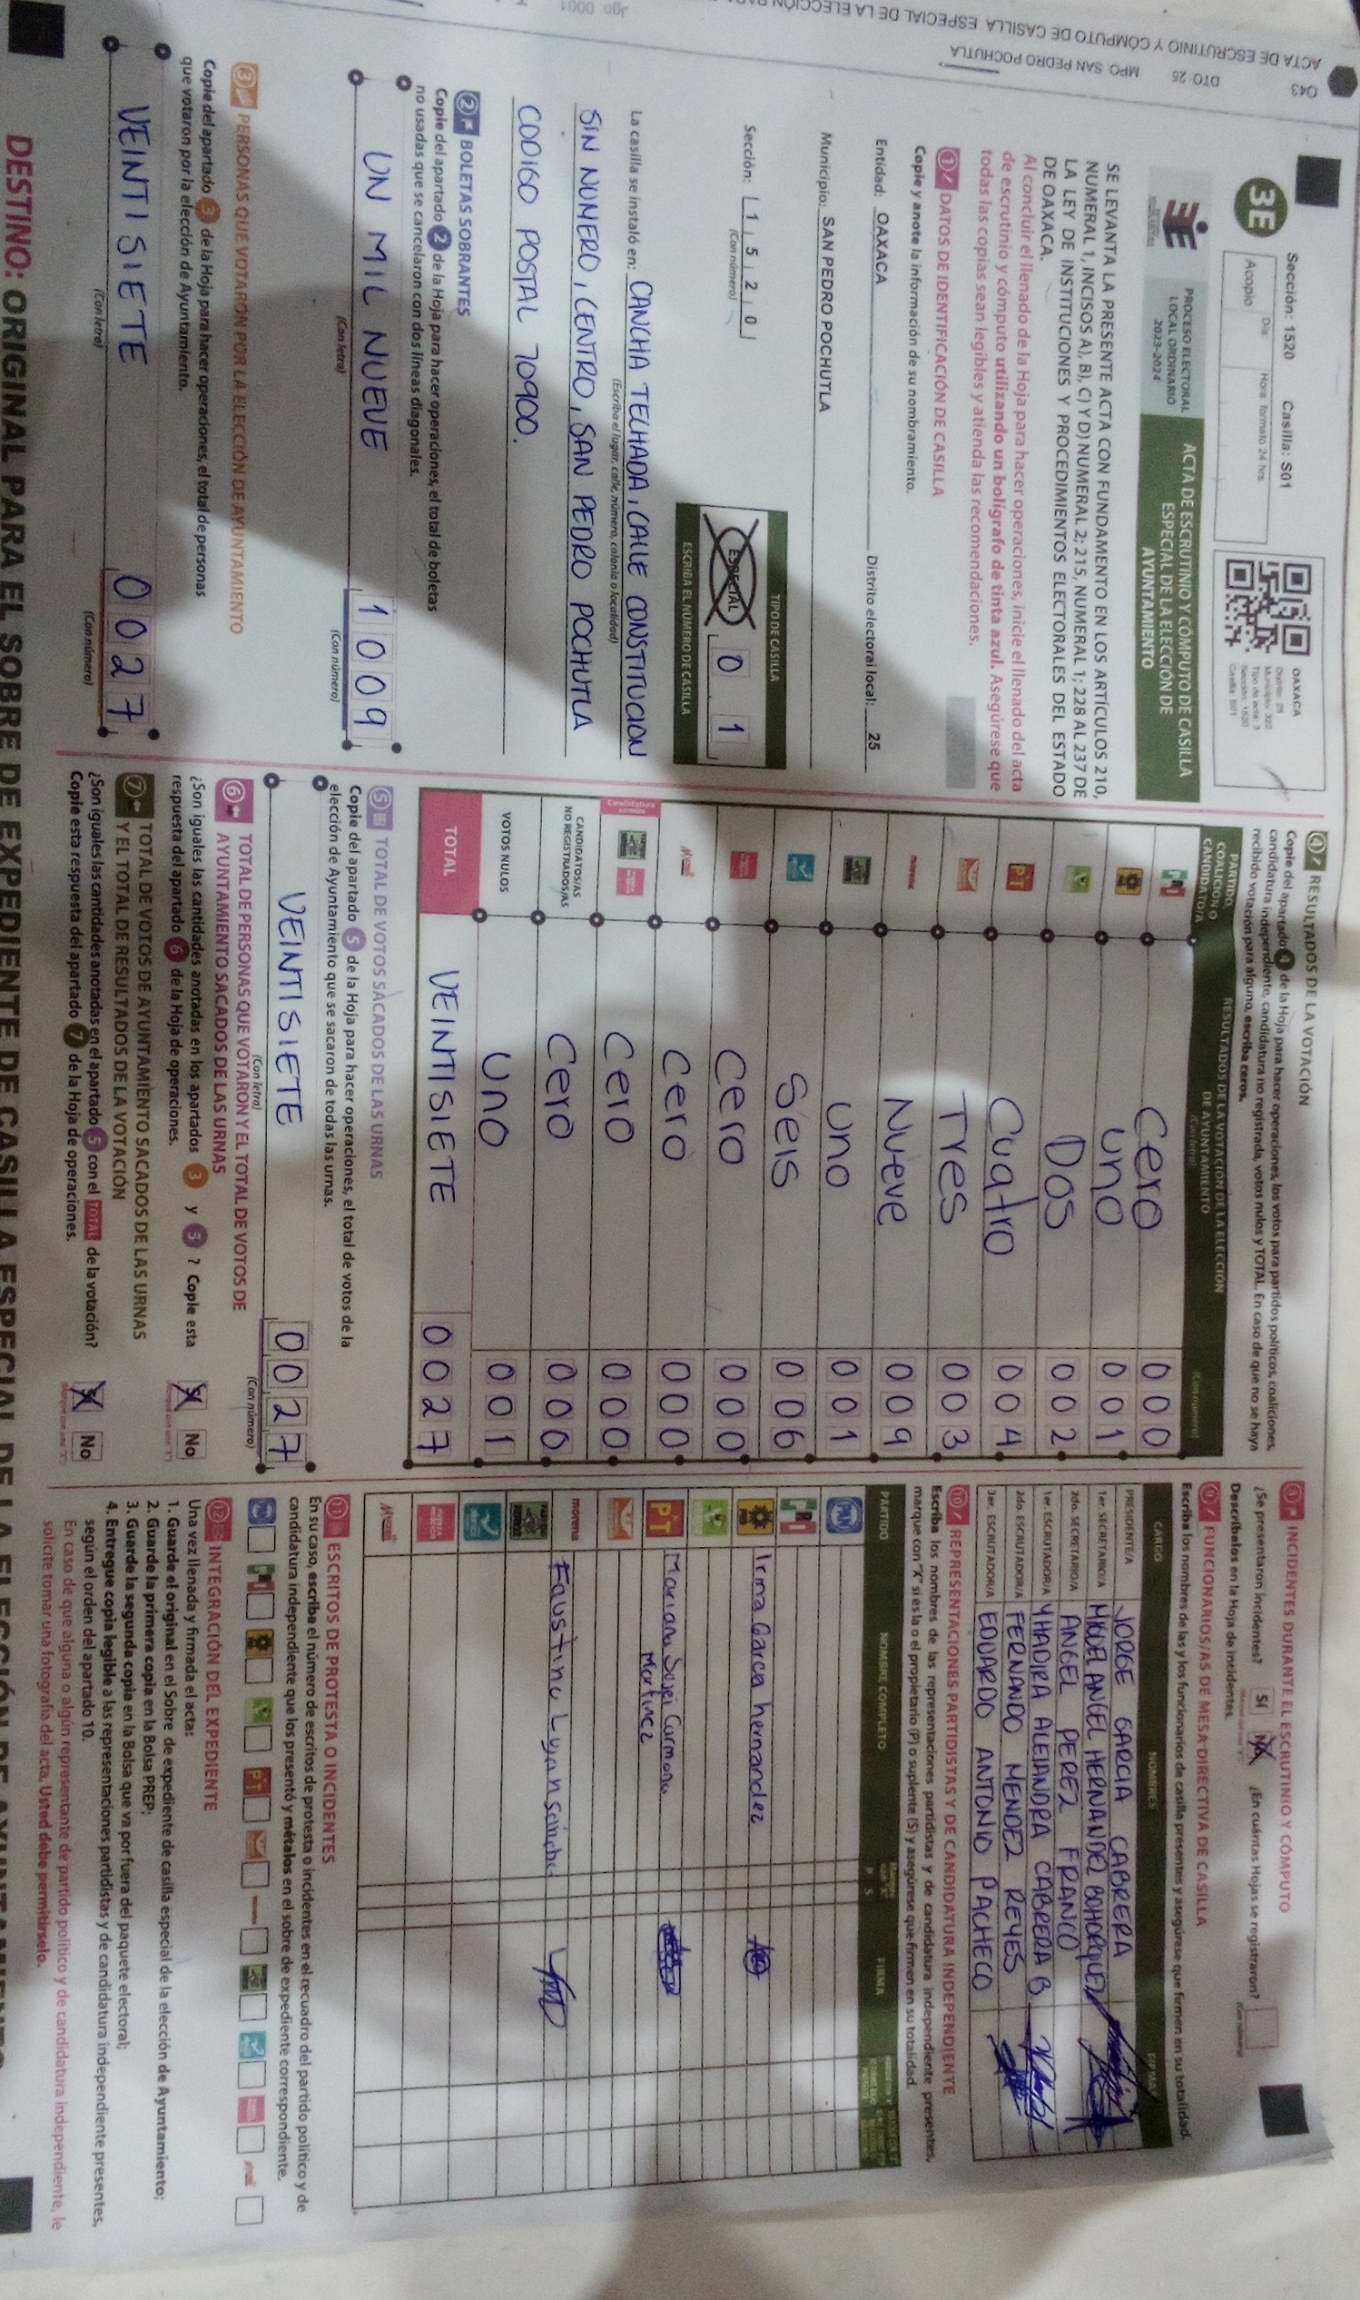 ACTA DE ESCRUTINIO Y CÓMPUTO DE CASILLA ESPECIAL DE LA ELECCIÓN
043
DTO 25
MPO: SAN PEDRO POCHUTLA
Sección: 1520 Casilla: S01
3E
Acopio
Día
Hora formato 24 hrs.
OAXACA
Distrito: 25
Municipio: 322
Tipo de acta: 3
Sección: 1520
Casilla: S01
PROCESO ELECTORAL
LOCAL ORDINARIO
2023-2024
ACTA DE ESCRUTINIO Y CÓMPUTO DE CASILLA
ESPECIAL DE LA ELECCIÓN DE
AYUNTAMIENTO
SE LEVANTA LA PRESENTE ACTA CON FUNDAMENTO EN LOS ARTÍCULOS 210,
NUMERAL 1, INCISOS A), B), C) Y D) NUMERAL 2; 215, NUMERAL 1; 228 AL 237 DE
LA LEY DE INSTITUCIONES Y PROCEDIMIENTOS ELECTORALES DEL ESTADO
DE OAXACA.
Al concluir el llenado de la Hoja para hacer operaciones, inicie el llenado del acta
de escrutinio y cómputo utilizando un bolígrafo de tinta azul. Asegúrese que
todas las copias sean legibles y atienda las recomendaciones.
1 DATOS DE IDENTIFICACIÓN DE CASILLA
Copie y anote la información de su nombramiento.
Entidad: OAXACA Distrito electoral local: 25
Municipio: SAN PEDRO POCHUTLA
Sección: 1 5 2 0
(Con número)
TIPO DE CASILLA
ESPECIAL 0 1
ESCRIBA EL NÚMERO DE CASILLA
La casilla se instaló en: CANCHA TECHADA, CALLE CONSTITUCION
(Escriba el lugar, calle, número, colonia o localidad)
SIN NUMERO, CENTRO, SAN PEDRO POCHUTLA
CODIGO POSTAL 70900.
2 BOLETAS SOBRANTES
Copie del apartado 2 de la Hoja para hacer operaciones, el total de boletas
no usadas que se cancelaron con dos líneas diagonales.
UN MIL NUEVE 1009
(Con letra) (Con número)
3 PERSONAS QUE VOTARON POR LA ELECCIÓN DE AYUNTAMIENTO
Copie del apartado 3 de la Hoja para hacer operaciones, el total de personas
que votaron por la elección de Ayuntamiento.
VEINTISIETE 0027
(Con letra) (Con número)
4 RESULTADOS DE LA VOTACIÓN
Copie del apartado 4 de la Hoja para hacer operaciones, los votos para partidos políticos, coaliciones,
candidatura independiente, candidatura no registrada, votos nulos y TOTAL. En caso de que no se haya
recibido votación para alguno, escriba ceros.
PARTIDO,
COALICIÓN O
CANDIDATO/A
RESULTADOS DE LA VOTACIÓN DE LA ELECCIÓN
DE AYUNTAMIENTO
(Con letra) (Con número)
PRI Cero 000
Uno 001
Dos 002
PT Cuatro 004
Tres 003
morena Nueve 009
Uno 001
Seis 006
Cero 000
Cero 000
Cero 000
CANDIDATOS/AS
NO REGISTRADOS/AS Cero 000
VOTOS NULOS Uno 001
TOTAL VEINTISIETE 0027
5 TOTAL DE VOTOS SACADOS DE LAS URNAS
Copie del apartado 5 de la Hoja para hacer operaciones, el total de votos de la
elección de Ayuntamiento que se sacaron de todas las urnas.
VEINTISIETE 0027
(Con letra) (Con número)
6 TOTAL DE PERSONAS QUE VOTARON Y EL TOTAL DE VOTOS DE
AYUNTAMIENTO SACADOS DE LAS URNAS
¿Son iguales las cantidades anotadas en los apartados 3 y 5 ? Copie esta
respuesta del apartado 6 de la Hoja de operaciones.
Sí No
7 TOTAL DE VOTOS DE AYUNTAMIENTO SACADOS DE LAS URNAS
Y EL TOTAL DE RESULTADOS DE LA VOTACIÓN
¿Son iguales las cantidades anotadas en el apartado 5 con el TOTAL de la votación?
Copie esta respuesta del apartado 7 de la Hoja de operaciones.
Sí No
8 INCIDENTES DURANTE EL ESCRUTINIO Y CÓMPUTO
¿Se presentaron incidentes? Sí No ¿En cuántas Hojas se registraron?
Descríbalos en la Hoja de incidentes.
9 FUNCIONARIOS/AS DE MESA DIRECTIVA DE CASILLA
Escriba los nombres de las y los funcionarios de casilla presentes y asegúrese que firmen en su totalidad.
CARGO NOMBRES FIRMAS
PRESIDENTE/A JORGE GARCIA CABRERA
1er. SECRETARIO/A MIGUEL ANGEL HERNANDEZ BOHORQUEZ
2do. SECRETARIO/A ANGEL PEREZ FRANCO
1er. ESCRUTADOR/A YHADIRA ALEJANDRA CABRERA B
2do. ESCRUTADOR/A FERNANDO MENDEZ REYES
3er. ESCRUTADOR/A EDUARDO ANTONIO PACHECO
10 REPRESENTACIONES PARTIDISTAS Y DE CANDIDATURA INDEPENDIENTE
Escriba los nombres de las representaciones partidistas y de candidatura independiente presentes,
marque con "X" si es la o el propietario (P) o suplente (S) y asegúrese que firmen en su totalidad.
PARTIDO NOMBRE COMPLETO P S FIRMA
PAN
PRI
Irma Garcia hernandez
PT Mariana Sugei Carmona
Martinez
morena Faustino Lujan
11 ESCRITOS DE PROTESTA O INCIDENTES
En su caso, escriba el número de escritos de protesta o incidentes en el recuadro del partido político y de
candidatura independiente que los presentó y métalos en el sobre de expediente correspondiente.
12 INTEGRACIÓN DEL EXPEDIENTE
Una vez llenada y firmada el acta:
1. Guarde el original en el Sobre de expediente de casilla especial de la elección de Ayuntamiento;
2. Guarde la primera copia en la Bolsa PREP;
3. Guarde la segunda copia en la Bolsa que va por fuera del paquete electoral;
4. Entregue copia legible a las representaciones partidistas y de candidatura independiente presentes,
según el orden del apartado 10.
En caso de que alguna o algún representante de partido político y de candidatura independiente, le
solicite tomar una fotografía del acta, Usted debe permitírselo.
DESTINO: ORIGINAL PARA EL SOBRE DE EXPEDIENTE DE CASILLA ESPECIAL DE LA ELECCIÓN DE AYUNTAMIENTO